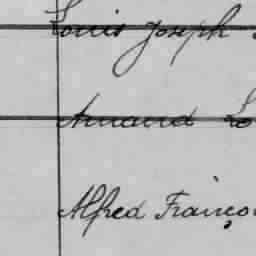 Louis Joseph
Armand Lo
Alfred Franço